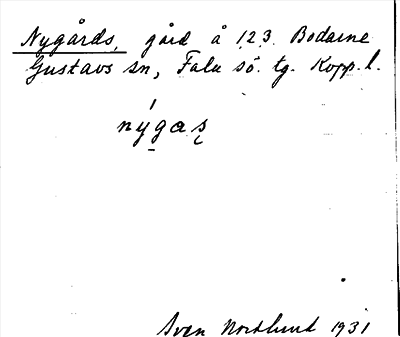 Nygårds, gård å 123 Bodarne
Gustavs sn, Falu sö. tg. Kopp. l.
nýgas
Sven Nordlund 1931